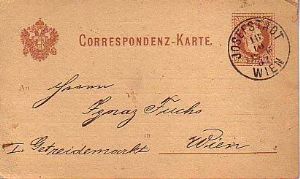 CORRESPONDENZ-KARTE.
JOSEFSTADT
WIEN
An
Herrn
Ignaz Fuchs
Wien
I Getreidemarkt